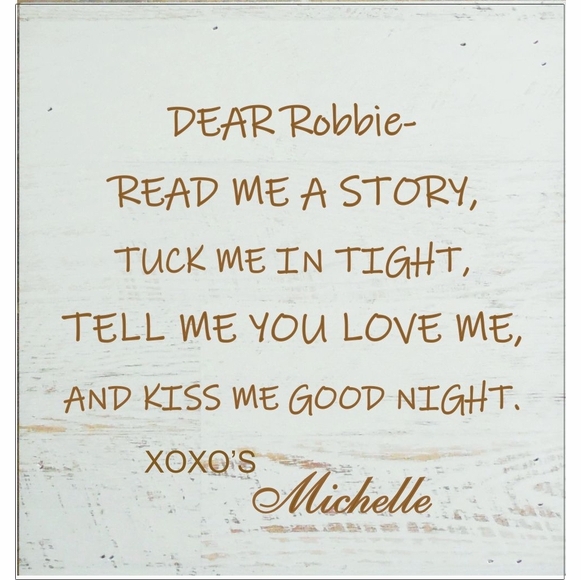 DEAR Robbie-
READ ME A STORY,
TUCK ME IN TIGHT,
TELL ME YOU LOVE ME,
AND KISS ME GOOD NIGHT.
XOXO'S
Michelle